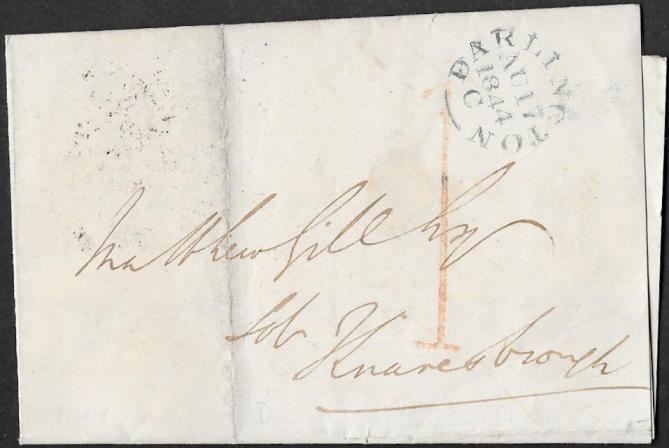 DARLINGTON
AU 17
1844
C
1
Matthew Gill Esq
Solr
Knaresbrough